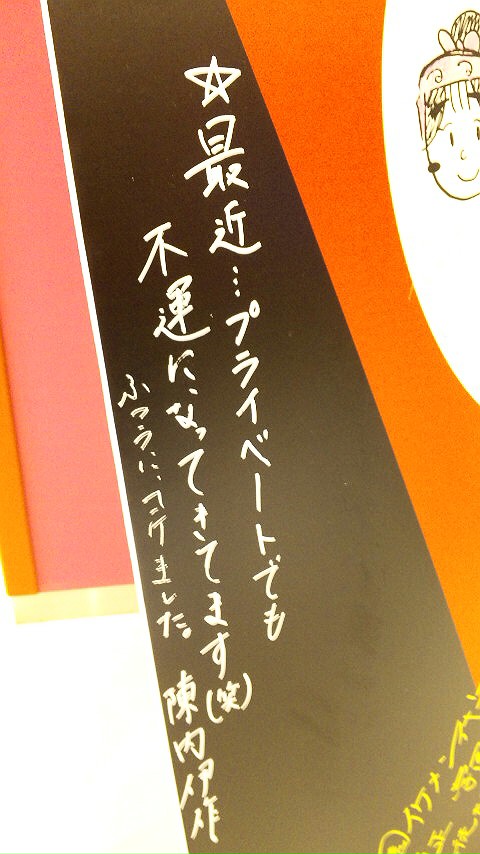 ☆最近…プライベートでも
不運になってきてます(笑)
ふつうにコケました。
陳内伊作
イケメン代